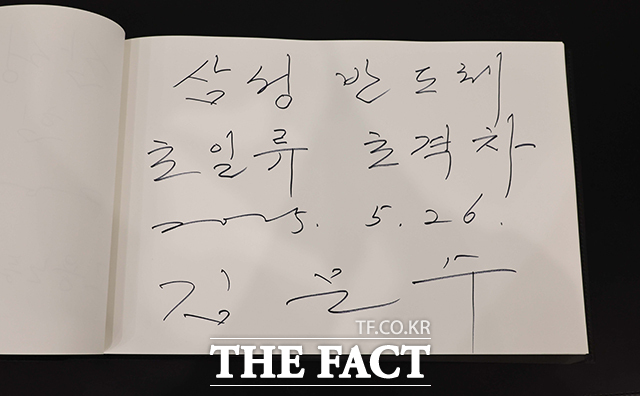 삼성 반도체
초일류 초격차
2025. 5. 26.
김문수
TF.CO.KR
THE FACT